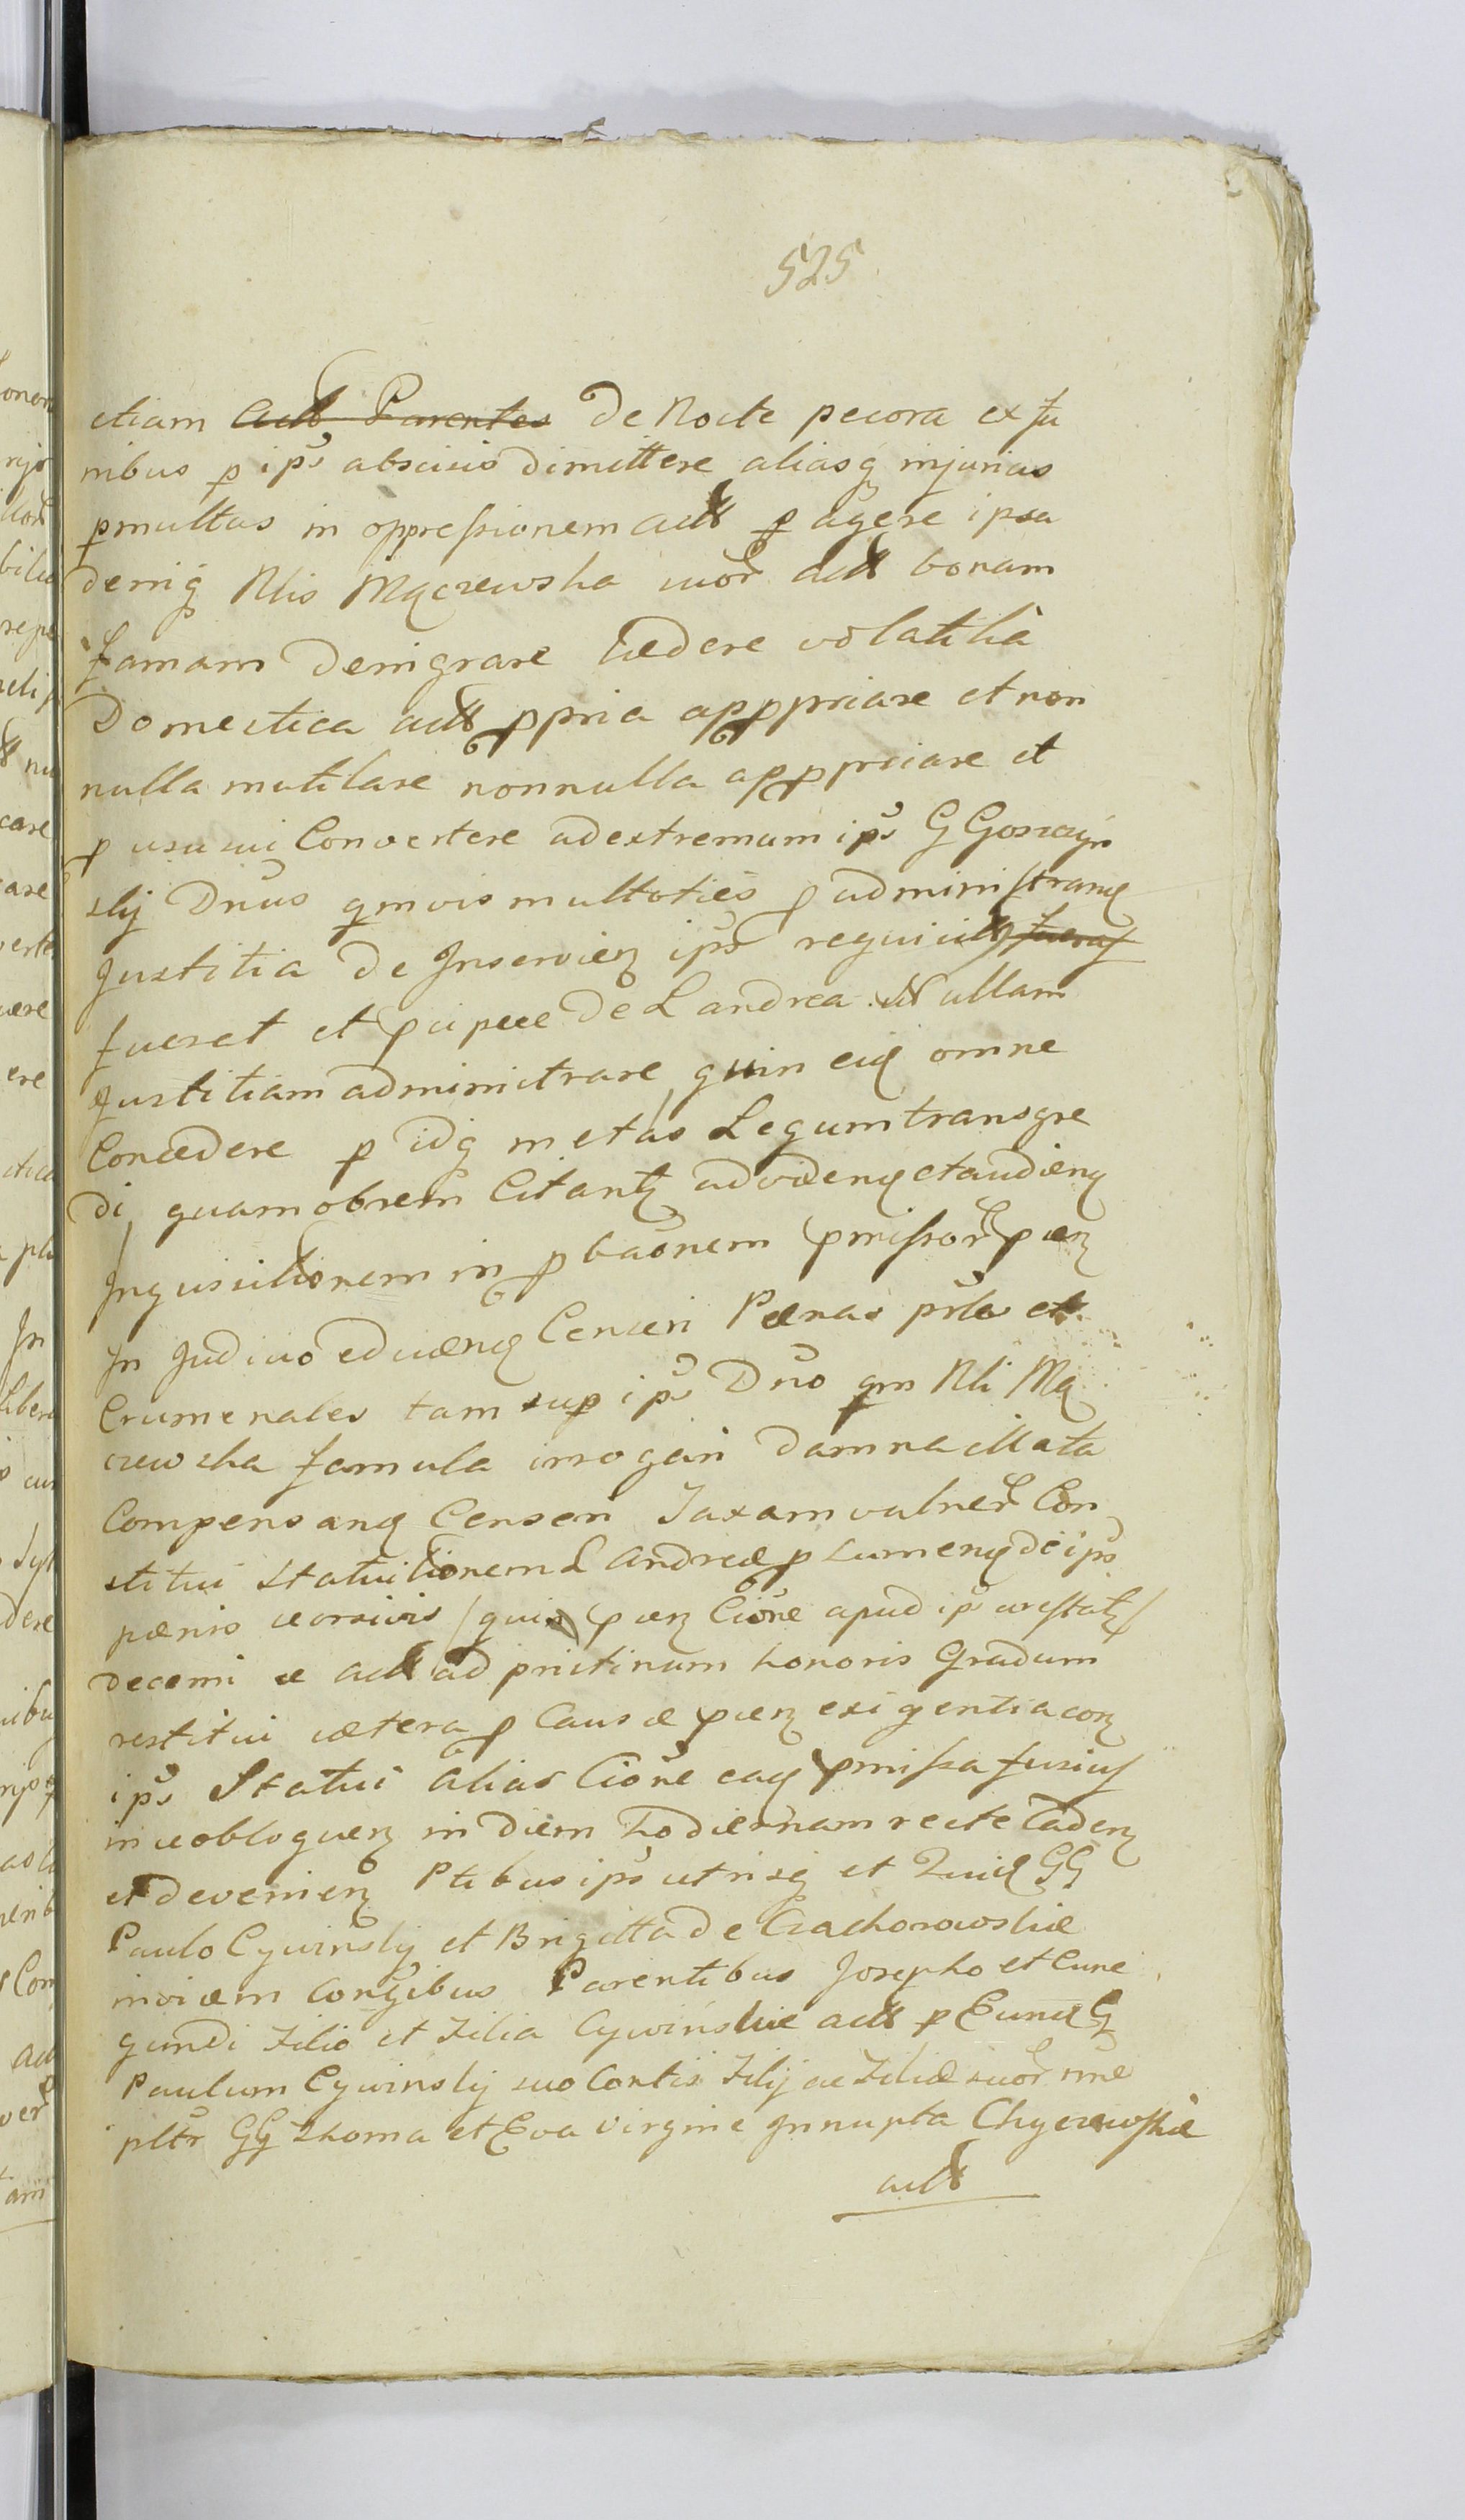 525
etiam Act Parentes de Nocte pecora ex fu
nibus p ips abscisis dimittere aliasq injurias
pmultas in oppressionem Act p agere ipsa
deniq Nlis Mączewska uxor Act bonam
famam denigrare lædere volatilia
Domestica act ppria appropriare et non
nulla mutilare nonnulla appropriare et
p usu sui Convertere ad extremum ips G Goszczyn
skij Dnus qmvis multoties p administranq
Justitia de Inservien ips requisit fueras
fuerat et pcipue de L andrea Nullam
Justitiam administrare, quin eiq omne
Concedere p idq metas Legum transgre
di, quamobrem Citant ad videnq et audienq
Inquisitionem in pbaonem pmissor pcen
In Judicio educenq Censeri Pænas prles et
Crumenales tam sup ips Dno qm Nli Mą
czewska famula irrogari damna illata
Compensanq Censeri Taxam vulner Con
stitui Statuitionem L Andreæ p sumenq de ips
pænis (quis pcen Cione apud ips arestat)
Decerni et act ad pristinum honoris Gradum
restitui cætera p Causæ pcen exigentia con
ips Statui alias Cione eaq pmissa fusius
in se obloquen in diem hodiernam recte Caden
et devenien Ptibus ips utrisq et Quid GG
Paulo Cywinskij et Brigitta de Czachorowskie
invicem Congibus Parentibus Josepho et Cune
gundi Filio et Filia Cywinskie act p Eund G
Paulum Cywinskij suo Consortis Filij ac Filiæ suor nne
pltr GG Thoma et Eva virgine Innupta Chyczewskie
act